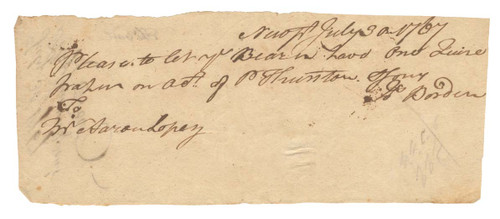 Newpt July 30 1767
Please to let ye Bearer have One Quire
on acct. of P Thurston of your
Jo Borden
To
Mr Aaron Lopez